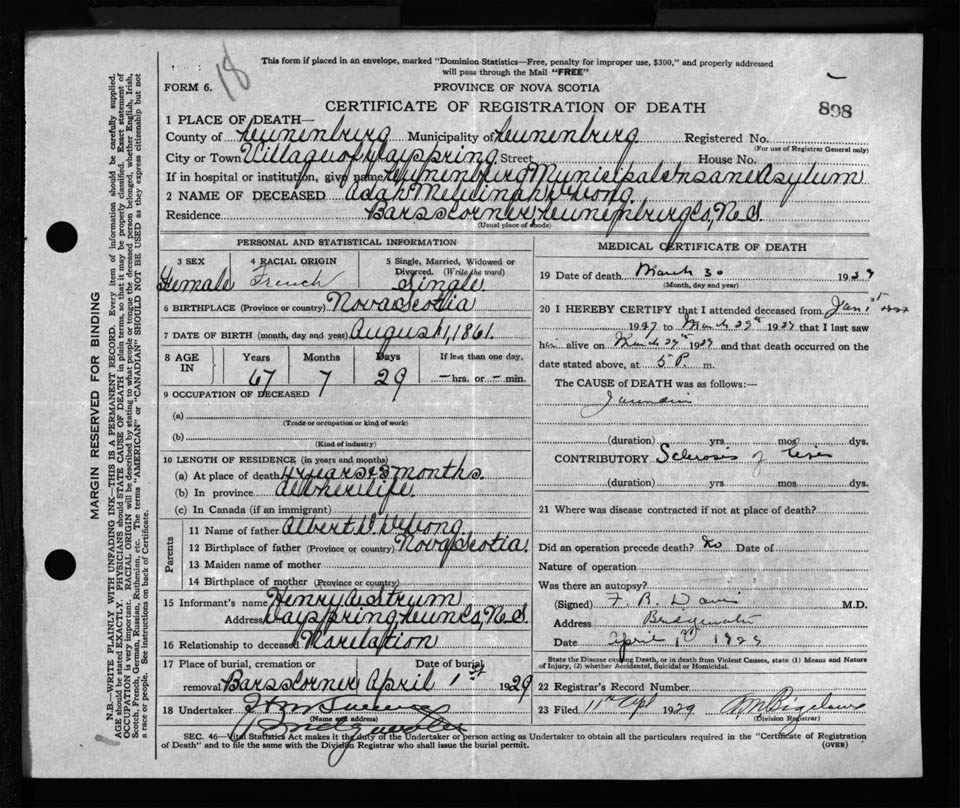 18
This form if placed in an envelope, marked "Dominion Statistics—Free, penalty for improper use, $300," and properly addressed
will pass through the Mail "FREE"
FORM 6.
PROVINCE OF NOVA SCOTIA
CERTIFICATE OF REGISTRATION OF DEATH
898
1 PLACE OF DEATH—
County of Lunenburg Municipality of Lunenburg Registered No.
(For use of Registrar General only)
City or Town Village of Dayspring Street House No.
If in hospital or institution, give name Lunenburg Municipal Insane Asylum
2 NAME OF DECEASED Adah
Residence Barss Corner, Lunenburg Co, N.S.
(Usual place of abode)
PERSONAL AND STATISTICAL INFORMATION
3 SEX 4 RACIAL ORIGIN 5 Single, Married, Widowed or
Divorced. (Write the word)
Female French Single
6 BIRTHPLACE (Province or country) Nova Scotia
7 DATE OF BIRTH (month, day and year) August 1, 1861.
8 AGE IN Years Months Days If less than one day,
67 7 29 – hrs. or – min.
9 OCCUPATION OF DECEASED
(a)
(Trade or occupation or kind of work)
(b)
(Kind of industry)
10 LENGTH OF RESIDENCE (in years and months)
(a) At place of death 4 years & 3 months.
(b) In province all her life.
(c) In Canada (if an immigrant)
Parents
11 Name of father Albert
12 Birthplace of father (Province or country) Nova Scotia.
13 Maiden name of mother
14 Birthplace of mother (Province or country)
15 Informant's name Henry A. Strum
Address Dayspring, Lunenb. Co, N.S.
16 Relationship to deceased No relation
17 Place of burial, cremation or Date of burial
removal Barss Corner April 1st 1929
18 Undertaker
(Name and address)
Bridgewater
MEDICAL CERTIFICATE OF DEATH
19 Date of death March 30 1929
(Month, day and year)
20 I HEREBY CERTIFY that I attended deceased from Jan 1st
1927 to March 29th 1929 that I last saw
her alive on March 29th 1929 and that death occurred on the
date stated above, at 5 P. m.
The CAUSE of DEATH was as follows:—
Jaundice
(duration) yrs. mos. dys.
CONTRIBUTORY Sclerosis of liver
(duration) yrs. mos. dys.
21 Where was disease contracted if not at place of death?
Did an operation precede death? No Date of
Nature of operation
Was there an autopsy?
(Signed) F. B. Davis M.D.
Address Bridgewater
Date April 1st 1929
State the Disease causing Death, or in death from Violent Causes, state (1) Means and Nature
of Injury, (2) whether Accidental, Suicidal or Homicidal.
22 Registrar's Record Number
23 Filed 11th Apl 1929
(Division Registrar)
SEC. 46—Vital Statistics Act makes it the duty of the Undertaker or person acting as Undertaker to obtain all the particulars required in the "Certificate of Registration
of Death" and to file the same with the Division Registrar who shall issue the burial permit.
(OVER)
MARGIN RESERVED FOR BINDING
N.B.—WRITE PLAINLY WITH UNFADING INK—THIS IS A PERMANENT RECORD. Every item of information should be carefully supplied.
AGE should be stated EXACTLY. PHYSICIANS should STATE CAUSE OF DEATH in plain terms, so that it may be properly classified. Exact statement of
OCCUPATION is very important. RACIAL ORIGIN will be described by stating to what people or race the deceased person belonged, whether English, Irish,
Scotch, French, German, Russian, Ruthenian, etc. The terms "AMERICAN" or "CANADIAN" SHOULD NOT BE USED as they express citizenship but not
a race or people. See instructions on back of Certificate.